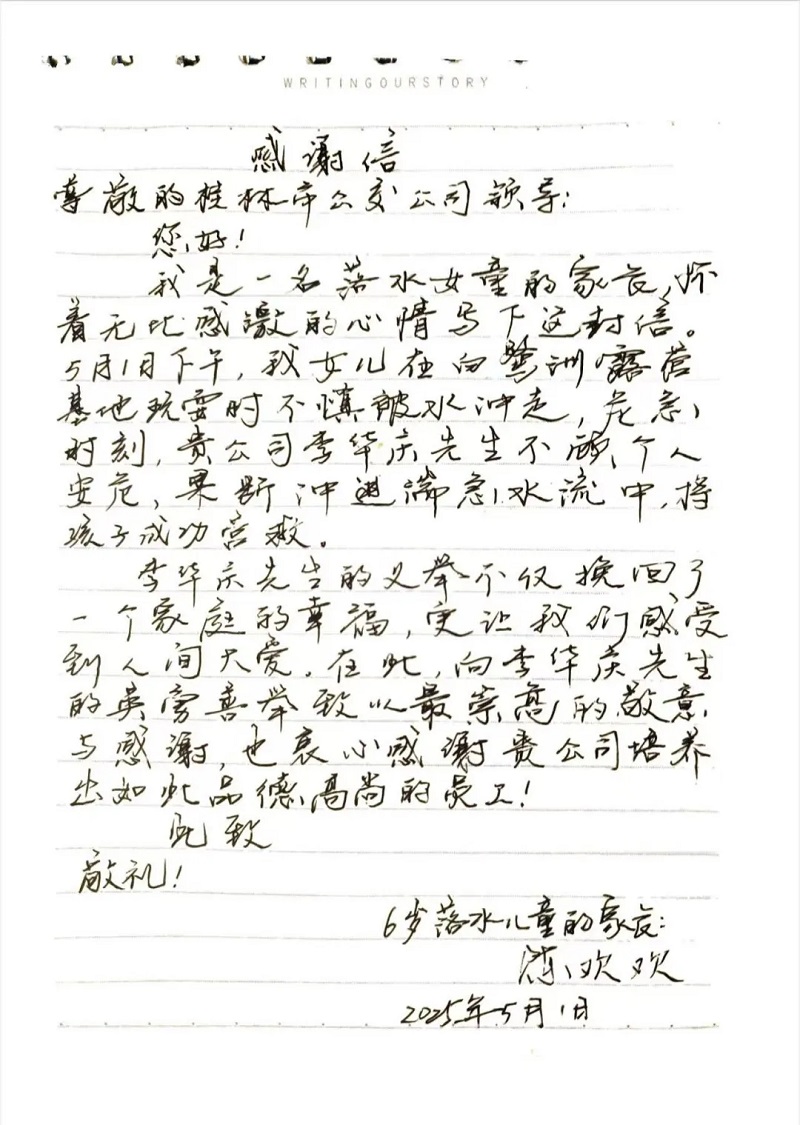 WRITINGOURSTORY
感谢信
尊敬的桂林市公交公司领导:
您好!
我是一名落水女童的家长,怀
着无比感激的心情写下这封信。
5月1日下午,我女儿在白鹭洲露营
基地玩耍时不慎被水冲走,危急
时刻,贵公司李华庆先生不顾个人
安危,果断冲进湍急水流中,将
孩子成功营救。
李华庆先生的义举不仅挽回了
一个家庭的幸福,更让我们感受
到人间大爱。在此,向李华庆先生
的英勇善举致以最崇高的敬意
与感谢,也衷心感谢贵公司培养
出如此品德高尚的员工!
此致
敬礼!
6岁落水儿童的家长:
欢欢
2025年5月1日